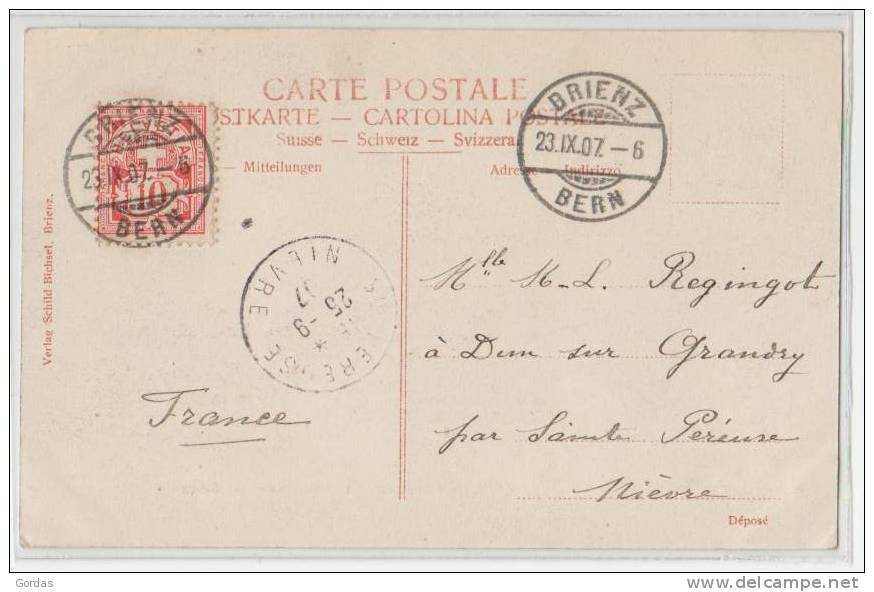 CARTE POSTALE
STKARTE — CARTOLINA POSTALE
Suisse — Schweiz — Svizzera
— Mitteilungen
Adresse — Indirizzo
BRIENZ
23.IX.07.–6
BERN
BRIENZ
23.IX.07.–6
BERN
10
NIEVRE
25 -9
07
STE PEREUSE
Verlag Schild-Bichsel, Brienz.
France
Mlle M-L. Regingot
à Dun sur Grandry
par Sainte Péreuse
Nièvre
Déposé
Gordas
www.delcampe.net